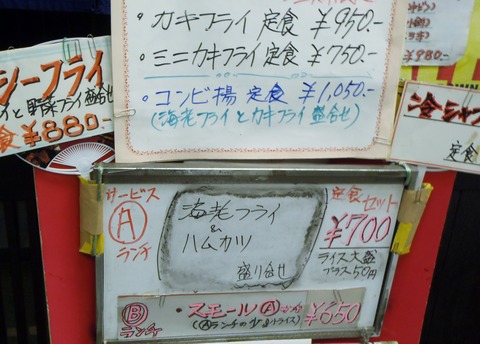 ・カキフライ 定食 ¥950.-
・ミニカキフライ 定食 ¥750.-
・コンビ揚 定食 ¥1,050.-
(海老フライとカキフライ盛合せ)
シーフライ
イと野菜フライ盛合せ
食 ¥880.-
¥980.-
定食
サービス
Ⓐ
ランチ
海老フライ
&
ハムカツ
盛り合せ
定食セット
¥700
ライス大盛
プラス50円
Ⓑ
ランチ
・スモールⒶランチ ¥650
(Ⓐランチの少なめライス)